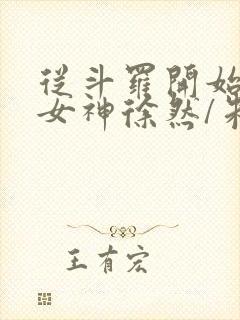 從斗羅開始
女神徐然/朱
王有宏